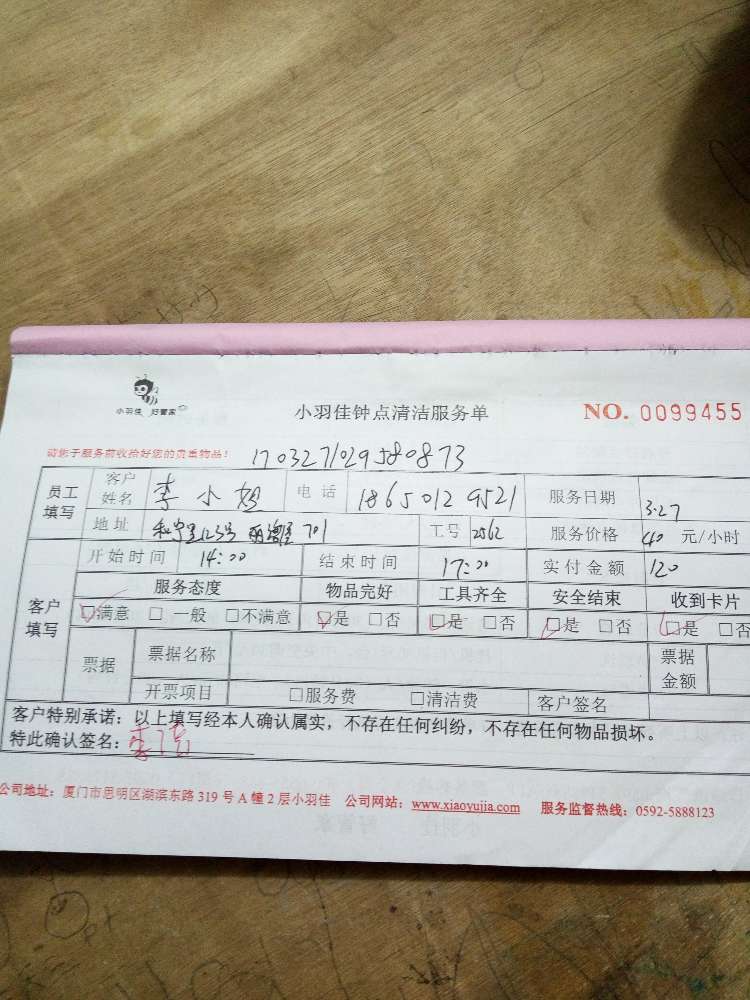 小羽佳 好管家
小羽佳钟点清洁服务单
NO. 0099455
请您于服务前收拾好您的贵重物品!
170327102958 0873
员工填写 客户姓名 李小姐 电话 18650129521 服务日期 3.27
地址 123号 701 工号 2562 服务价格 40 元/小时
开始时间 14:00 结束时间 17:00 实付金额 120
客户填写 服务态度 物品完好 工具齐全 安全结束 收到卡片
☑满意 □一般 □不满意 ☑是 □否 ☑是 □否 ☑是 □否 ☑是 □否
票据 票据名称 票据金额
开票项目 □服务费 □清洁费 客户签名
客户特别承诺:以上填写经本人确认属实,不存在任何纠纷,不存在任何物品损坏。
特此确认签名:李
公司地址:厦门市思明区湖滨东路 319 号 A 幢 2 层小羽佳 公司网站:www.xiaoyujia.com 服务监督热线:0592-5888123